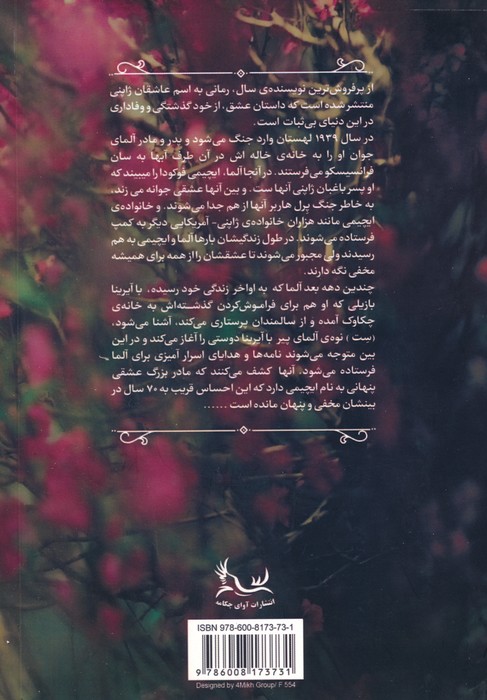 از پرفروش‌ترین نویسنده‌ی سال، رمانی به اسم عاشقان ژاپنی
منتشر شده است که داستان عشق، از خود گذشتگی و وفاداری
در این دنیای بی‌ثبات است.
در سال ۱۹۳۹ لهستان وارد جنگ می‌شود و پدر و مادر آلمای
جوان او را به خانه‌ی خاله اش در آن طرف آبها به سان
فرانسیسکو می‌فرستند. در آنجا آلما، ایچیمی فوکودا را میبیند که
او پسر باغبان ژاپنی آنها ست. و بین آنها عشقی جوانه می زند،
به خاطر جنگ پرل هاربر آنها از هم جدا می‌شوند. و خانواده‌ی
ایچیمی مانند هزاران خانواده‌ی ژاپنی- آمریکایی دیگر به کمپ
فرستاده می‌شوند. در طول زندگیشان بارها آلما و ایچیمی به هم
رسیدند ولی مجبور می‌شوند تا عشقشان را از همه برای همیشه
مخفی نگه دارند.
چندین دهه بعد آلما که به اواخر زندگی خود رسیده، با آیرینا
بازیلی که او هم برای فراموش‌کردن گذشته‌اش به خانه‌ی
چکاوک آمده و از سالمندان پرستاری می‌کند، آشنا می‌شود.
(ست) نوه‌ی آلمای پیر با آیرینا دوستی را آغاز می‌کند و در این
بین متوجه می‌شوند نامه‌ها و هدایای اسرار آمیزی برای آلما
فرستاده می‌شود. آنها کشف می‌کنند که مادر بزرگ عشقی
پنهانی به نام ایچیمی دارد که این احساس قریب به ۷۰ سال در
بینشان مخفی و پنهان مانده است ......
انتشارات آوای چکامه
ISBN 978-600-8173-73-1
9 786008 173731
Designed by 4Mikh Group/ F 554